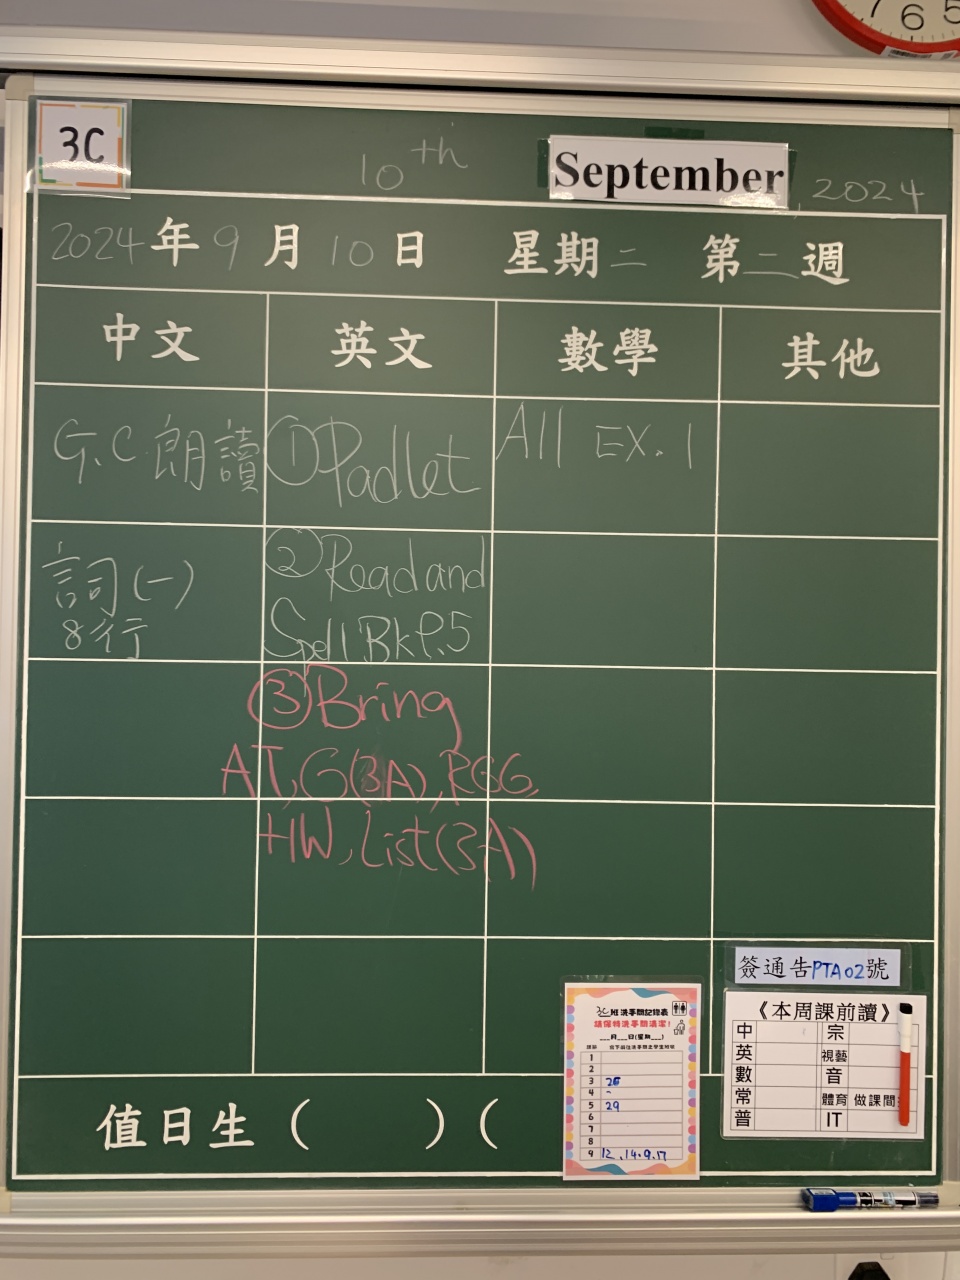 7 6 5
3C
10th September, 2024
2024年9月10日 星期二 第二週
中文 英文 數學 其他
G.C 朗讀
①Padlet
All EX.1
詞(一)
8行
②Read and
Spell Bk P.5
③Bring
AT, G(3A), RGG,
HW, List(3A)
簽通告PTA02號
《本周課前讀》
中 宗
英 視藝
數 音
常 體育 做課間
普 IT
3C班洗手間記錄表
請保持洗手間清潔!
___月___日(星期___)
1
2
3 25
4 -
5 29
6
7
8
9 12,14,9,17
值日生( )(